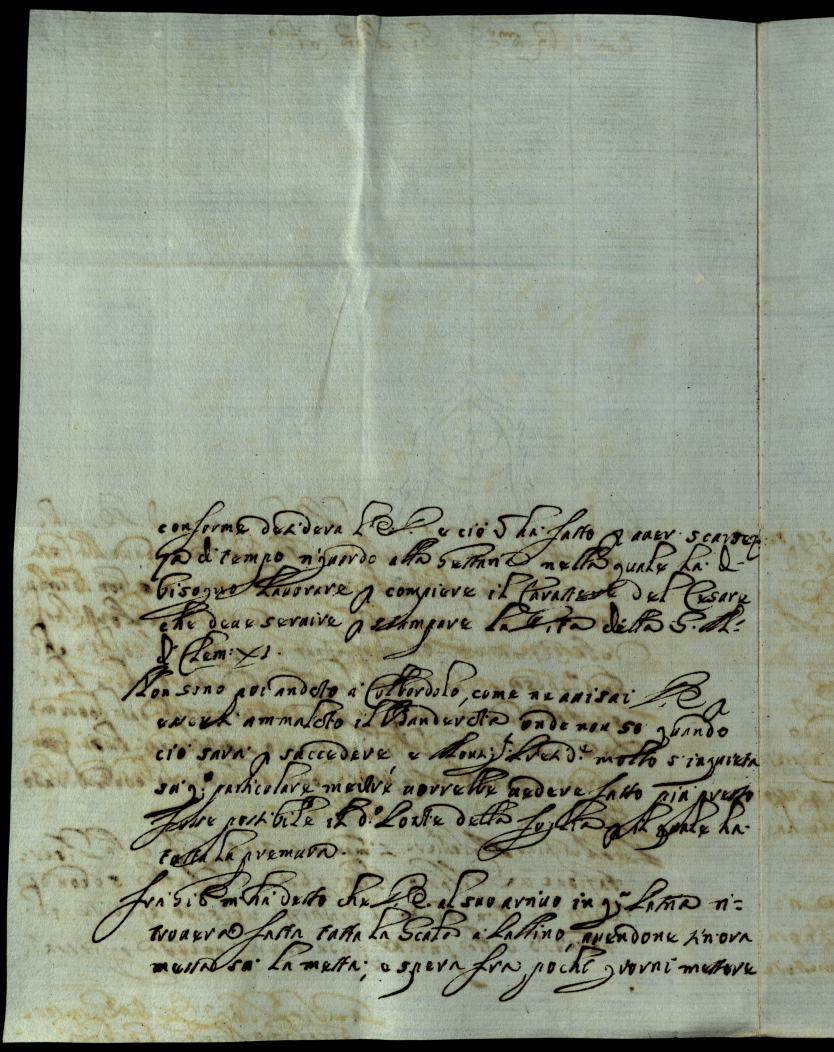 conforme desidera V.E. e ciò ha fatto p aver scarsez
za di tempo riguardo alla nella quale ha di
bisogno lavorare p compiere il Carattere del Cesare
che deve servire p stampare la Vita della S. M.
di Clem: XI.
Non sono poi andato a Colbordolo, come ne avisai V.E. p
ammalato il Banderesta onde non so quando
ciò sarà p succedere, e molto s'inquieta
su q.o particolare mentre vorrebbe vedere fatto più presto
fosse possibile il d.o Ponte della Foglia p il quale ha
tutta la premura.
m'ha detto che V.E. al suo arrivo in q.ta ri=
troverà fatta tutta la Scala a avendone sin'ora
messa su la metta; e spera fra pochi giorni mettere